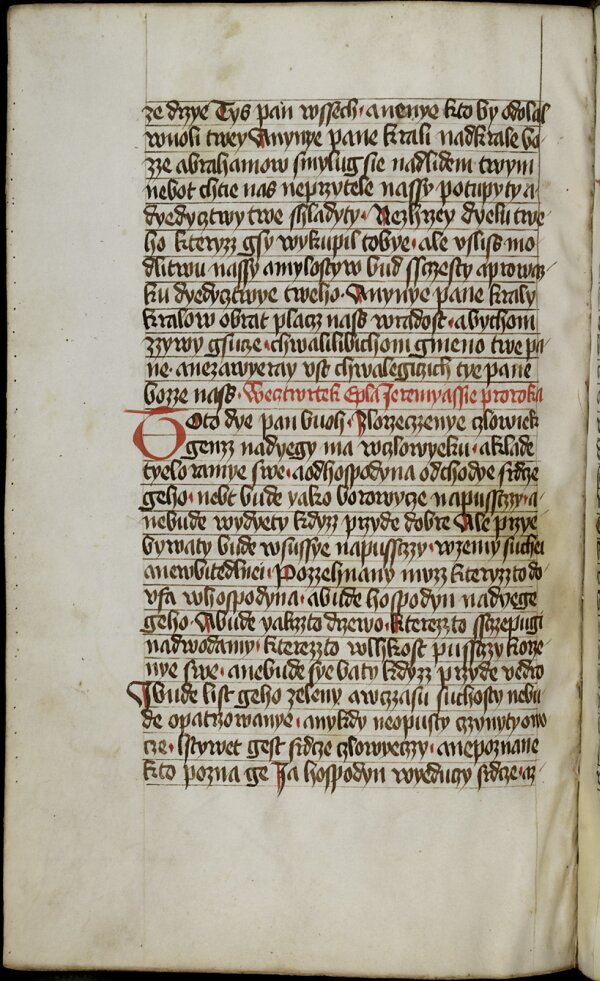 ze drzye Tys pan wssech · anenye kto by odolal
wuoli twey Anynye pane krali nadkrale bo-
zze abrahamow smylug sie nadlidem twym
nebot chtie nas neprzytele nassy potupyty a-
dyedycztwy twe shladyty · Nezhrzey dyelu twe-
ho kteryzz gsy wykupil tobye · ale vsliss mo-
dlitwu nassy amylostyw bud sslczesty aprowaz-
ku dyedycztwye tweho · Anynye pane kraly
kralow obrat placz nass wradost · abychom
zzywy gsucze · chwalilibichom gmeno twe pa-
ne · anezawyeray vst chwalegiczich tye pane
bozze nass · Wecztwrtek Epla Jeremyassie proroka
Toto dye pan buoh · Zlorzeczenye czlowiek
genzz nadyegy ma wczlowyeku · aklade
tyelo ramye swe · aodhospodyna odchodye srdcze
geho · nebt bude yako borowycze napussczzy · a-
nebude wydyety kdyzz przyde dobre Ale przye-
bywaty bude wsussye napussczzy · wzemy suchei
anewbitedlnei · Pozzehnany muzz kteryzzto do-
vfa whospodyna · abude hospodyn nadyege
geho · Abude yakzto drzewo · kterezto sszczepugi
nadwodamy · kterezto wlhkost pussczzy korze-
nye swe · anebude sye baty kdyzz przyde vedro
Abude list geho zeleny awczasu suchosty nebu-
de opatrzowanye · anykdy neopusty czynyty owo-
cze · Lstywet gest srdcze czlowyeczy · anepoznane
kto pozna ge Ja hospodyn wyeduczy srdcze · az-